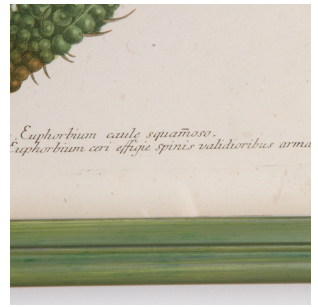 Euphorbium caule squam̄oso.
Euphorbium ceri effigie spinis validioribus arma